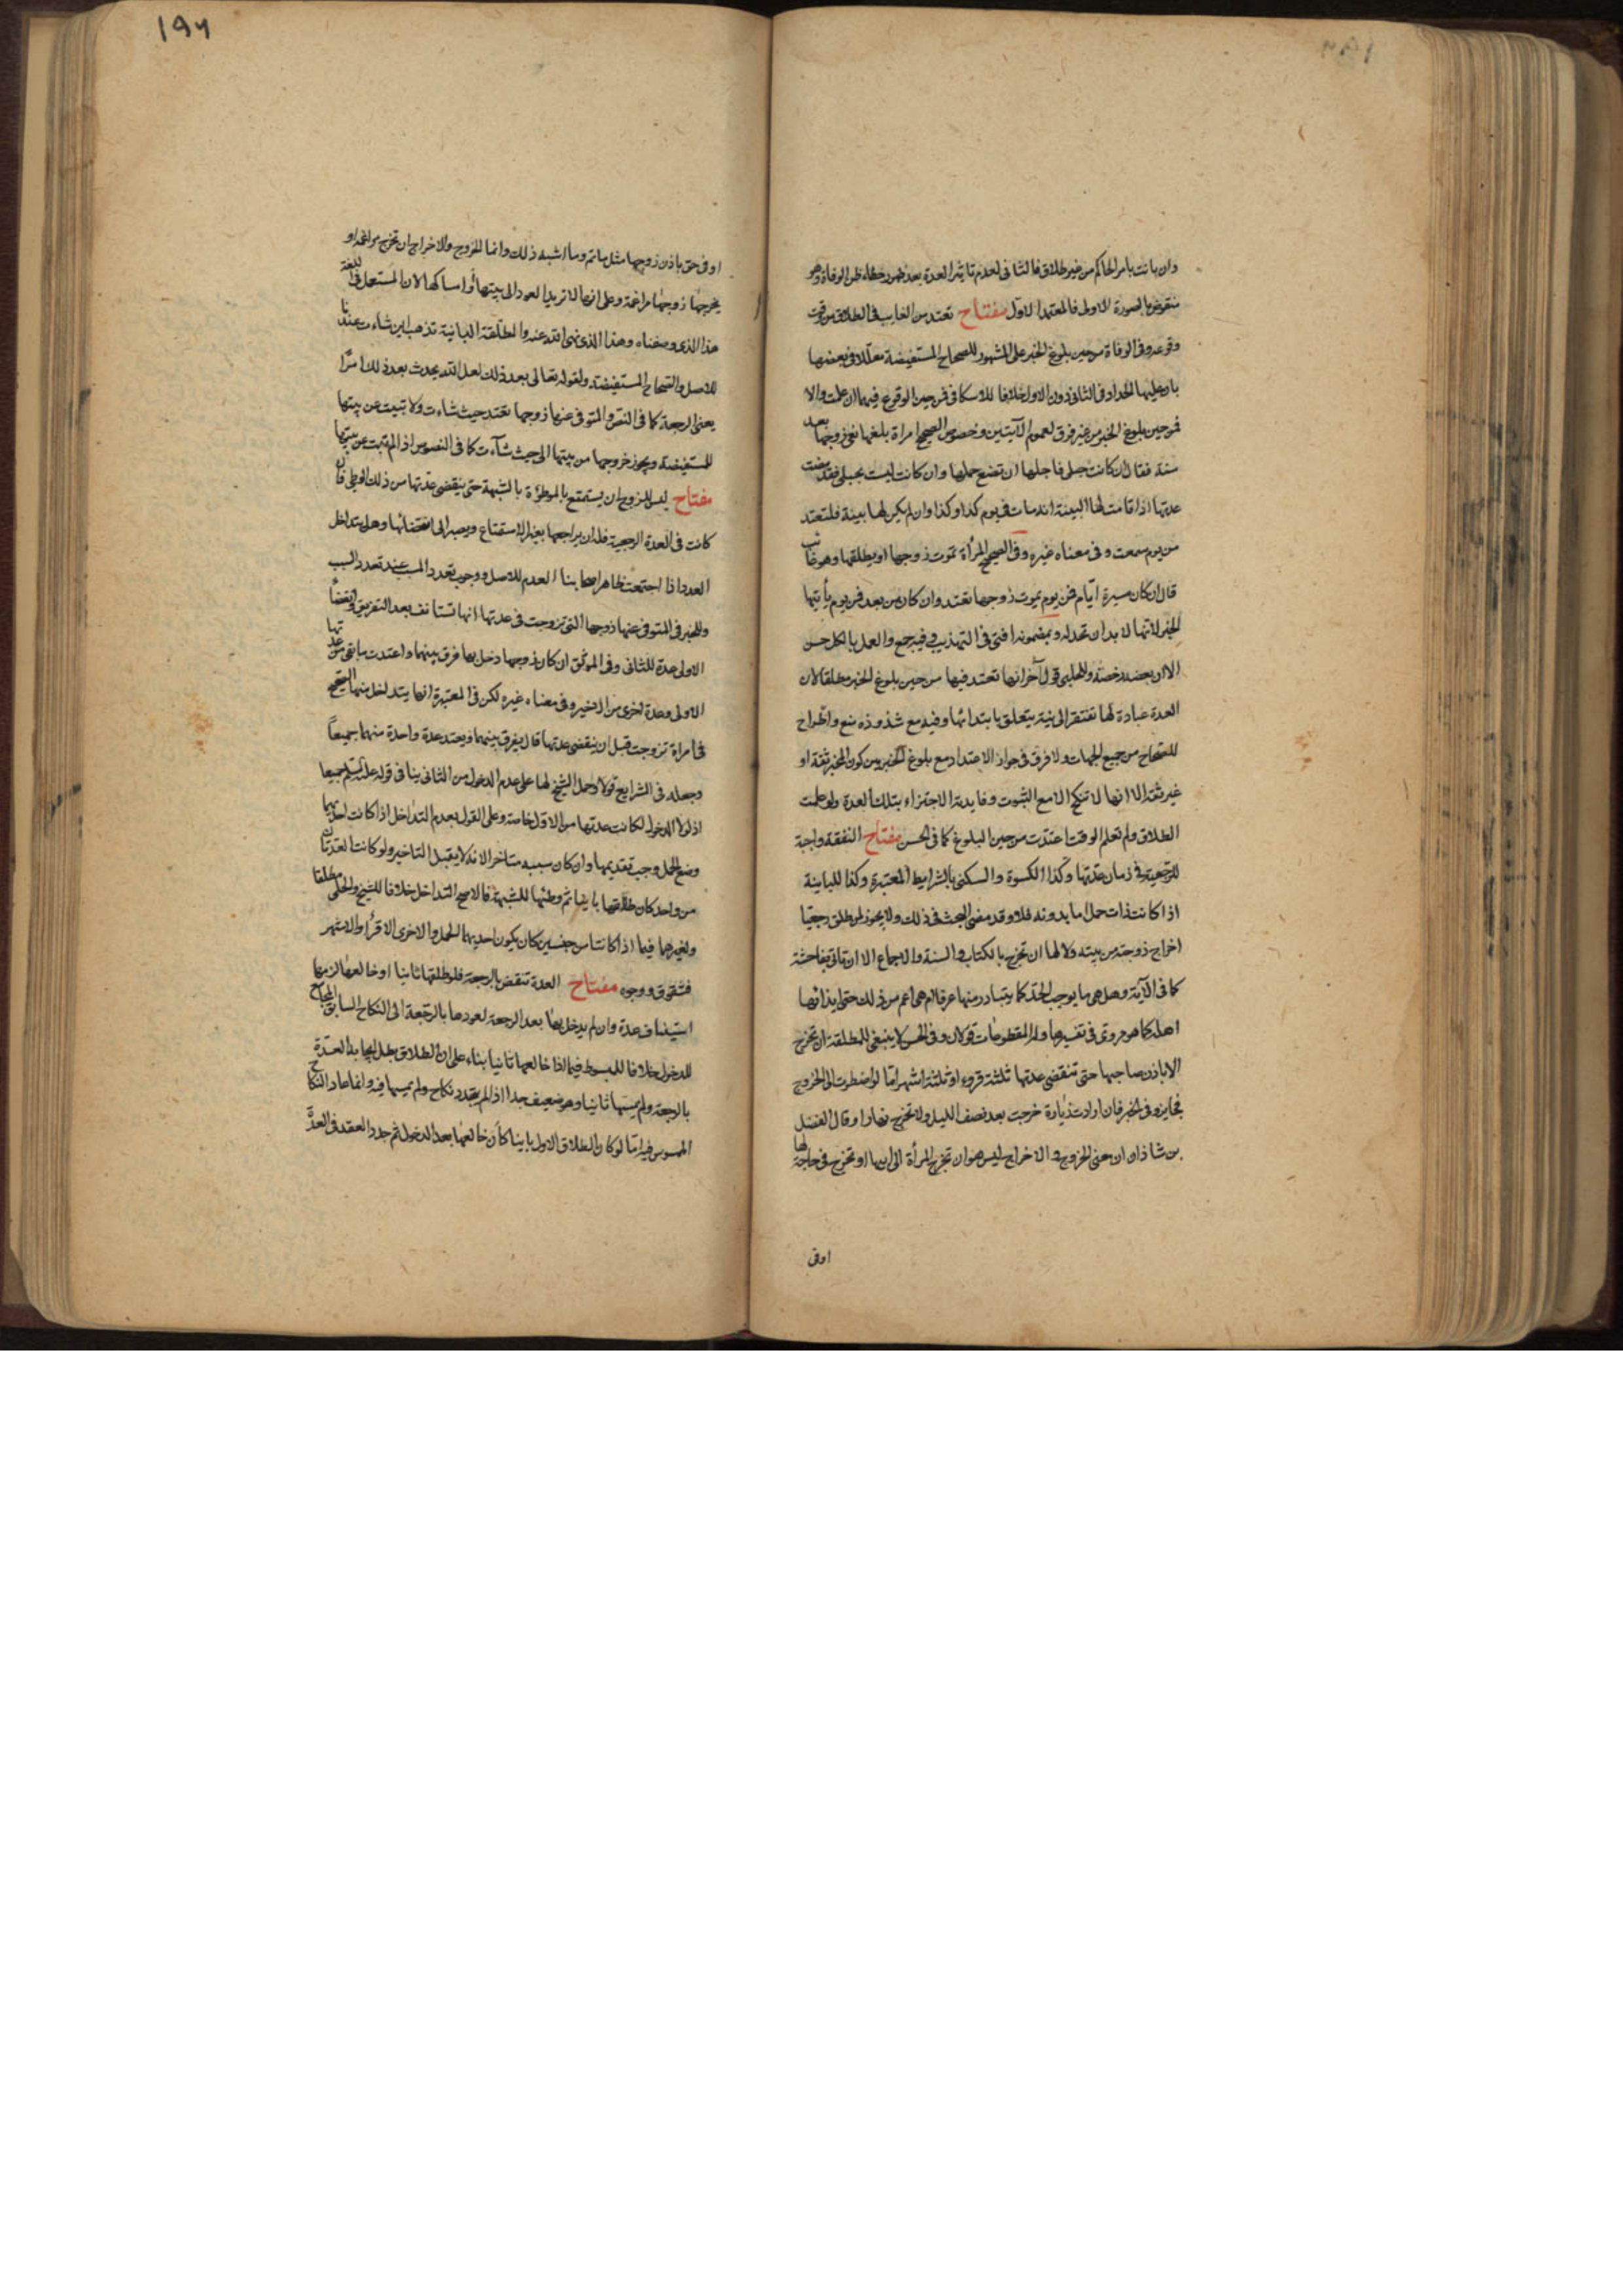 وان بانت بامر الحاكم من غير طلاق فالثانى لعدم تاثير العدة بعد ظهور خطاء ظن الوفاة وهو
منقوض بالصورة الاولى فالمعتمد الاول مفتاح تعتد من الغايب فى الطلاق من وقت
وقوعه وفى الوفاة من حين بلوغ الخبر على المشهور للصحاح المستفيضة معللا فى بعضها
بان عليها الحداد فى الثانى دون الاول خلافا للاسكافى فمن حين الوقوع فيهما ان علمت والا
فمن حين بلوغ الخبر من غير فرق لعموم الآيتين وخصوص الصحيح امراة بلغها نعى زوجها بعد
سنة فقال ان كانت حبلى فاجلها ان تضع حملها وان كانت ليست بحبلى فقد مضت
عدتها اذا قامت لها البينة انه مات فى يوم كذا وكذا وان لم يكن لها بينة فلتعتد
من يوم سمعت وفى معناه غيره وفى الصحيح المرأة تموت زوجها او يطلقها وهو غائب
قال ان كان مسيرة ايام فمن يوم يموت زوجها تعتد وان كان من بعد فمن يوم يأتيها
الخبر لانها لا بد ان تحد له وبمضمونه افتى فى التهذيب وفيه جمع والعمل بالكل حسن
الا ان بعضه رخصة وللحلبى قول آخر انها تعتد فيها من حين بلوغ الخبر مطلقا لان
العدة عبادة لها تفتقر الى نية يتعلق بابتدائها وفيه مع شذوذه منع واطراح
للصحاح من جميع الجهات ولا فرق فى جواز الاعتداد مع بلوغ الخبر بين كون المخبر ثقة او
غير ثقة الا انها لا تنكح الا مع الثبوت وفايدته الاجتزاء بتلك العدة ولو علمت
الطلاق ولم تعلم الوقت اعتدت من حين البلوغ كما فى الحسن مفتاح النفقة واجبة
للرجعية فى زمان عدتها وكذا الكسوة والسكنى بالشرايط المعتبرة وكذا للباينة
اذا كانت ذات حمل اما بدونه فلا وقد مضى البحث فى ذلك ولا يجوز لمن طلق رجعيا
اخراج زوجته من بيته ولا لها ان تخرج بالكتاب والسنة والاجماع الا ان تاتى بفاحشة
كما فى الآية وهل هى ما يوجب الحد كما يتبادر منها عرفا ام هى اعم من ذلك حتى ايذائها
اهله كما هو مروى فى تفسيرها وله المقطوعات قولان وفى الحسن لا ينبغى للمطلقة ان تخرج
الا باذن صاحبها حتى تنقضى عدتها ثلثة قروء او ثلثة اشهر اما لو اضطرت الى الخروج
فجايز وفى الخبر فان ارادت زيارة خرجت بعد نصف الليل ولا تخرج نهارا وقال الفضل
بن شاذان ان معنى الخروج والاخراج ليس هو ان تخرج المرأة الى ابيها او تخرج فى حاجة لها
اوفى
١٩٦
او فى حق باذن زوجها مثل ماتم وما اشبه ذلك وانما الخروج والاخراج ان تخرج مراغمة او
يخرجها زوجها مراغمة وعلى انها لا تريد العود الى بيتها او امساكها لان المستعمل فى اللغة
هذا الذى وصفناه وهذا الذى نهى الله عنه والمطلقة الباينة تذهب اين شاءت عندنا
للاصل والصحاح المستفيضة ولقوله تعالى بعد ذلك لعل الله يحدث بعد ذلك امرا
يعنى الرجعة كما فى النص والمتوفى عنها زوجها تعتد حيث شاءت ولا تبيت عن بيتها
للمستفيضة ويجوز خروجها من بيتها الى حيث شآءت كما فى النصوص اذا لم تبت عن بيتها
مفتاح ليس للزوج ان يستمتع بالموطوءة بالشبهة حتى ينقضى عدتها من ذلك الوطى فان
كانت فى العدة الرجعية فله ان يراجعها بغير الاستمتاع ويصبر الى انقضائها وهل يتداخل
العدد اذا اجتمعت ظاهر اصحابنا العدم للاصل ووجوب تعدد المسبب عند تعدد السبب
وللخبر فى المتوفى عنها زوجها التى تزوجت فى عدتها انها تستانف بعد التفريق وانقضاء
الاولى عدة للثانى وفى الموثق ان كان زوجها دخل بها فرق بينهما واعتدت ما بقى من عدتها
الاولى وعدة اخرى من الاخير وفى معناه غيره لكن فى المعتبرة انها يتداخل منها الصحيح
فى امراة تزوجت قبل ان ينقضى عدتها قال يفرق بينهما ويعتد عدة واحدة منهما جميعا
وجعله فى الشرايع قولا وحمل الشيخ لها على عدم الدخول من الثانى ينافى قوله عليه السلم جميعا
اذ لولا الدخول لكانت عدتها من الاول خاصة وعلى القول بعدم التداخل اذا كانت احديهما
وضع الحمل وجب تقديمها وان كان سببه متاخرا لانه لا يقبل التاخير ولو كانت العدتان
من واحد كان طلقها باينا ثم وطئها للشبهة فالاصح التداخل خلافا للشيخ والحلى مطلقا
ولغيرهما فيما اذا كانتا من جنسين كان يكون احديهما الحمل والاخرى الاقرأ والاشهر
فشقوق ووجوه مفتاح العدة تنقض بالرجعة فلو طلقها ثانيا او خالعها لزمها
استيناف عدة وان لم يدخل بها بعد الرجعة لعودها بالرجعة الى النكاح السابق المجامع
للدخول خلافا للمبسوط فيما اذا خالعها ثانيا بناء على ان الطلاق بطل ايجابه العدة
بالرجعة ولم يمسها ثانيا وهو ضعيف جدا اذ لم يتجدد نكاح ولم يمسها فيه وانما عاد النكاح
الممسوس فيه اما لو كان الطلاق الاول باينا كأن خالعها بعد الدخول ثم جدد العقد فى العدة